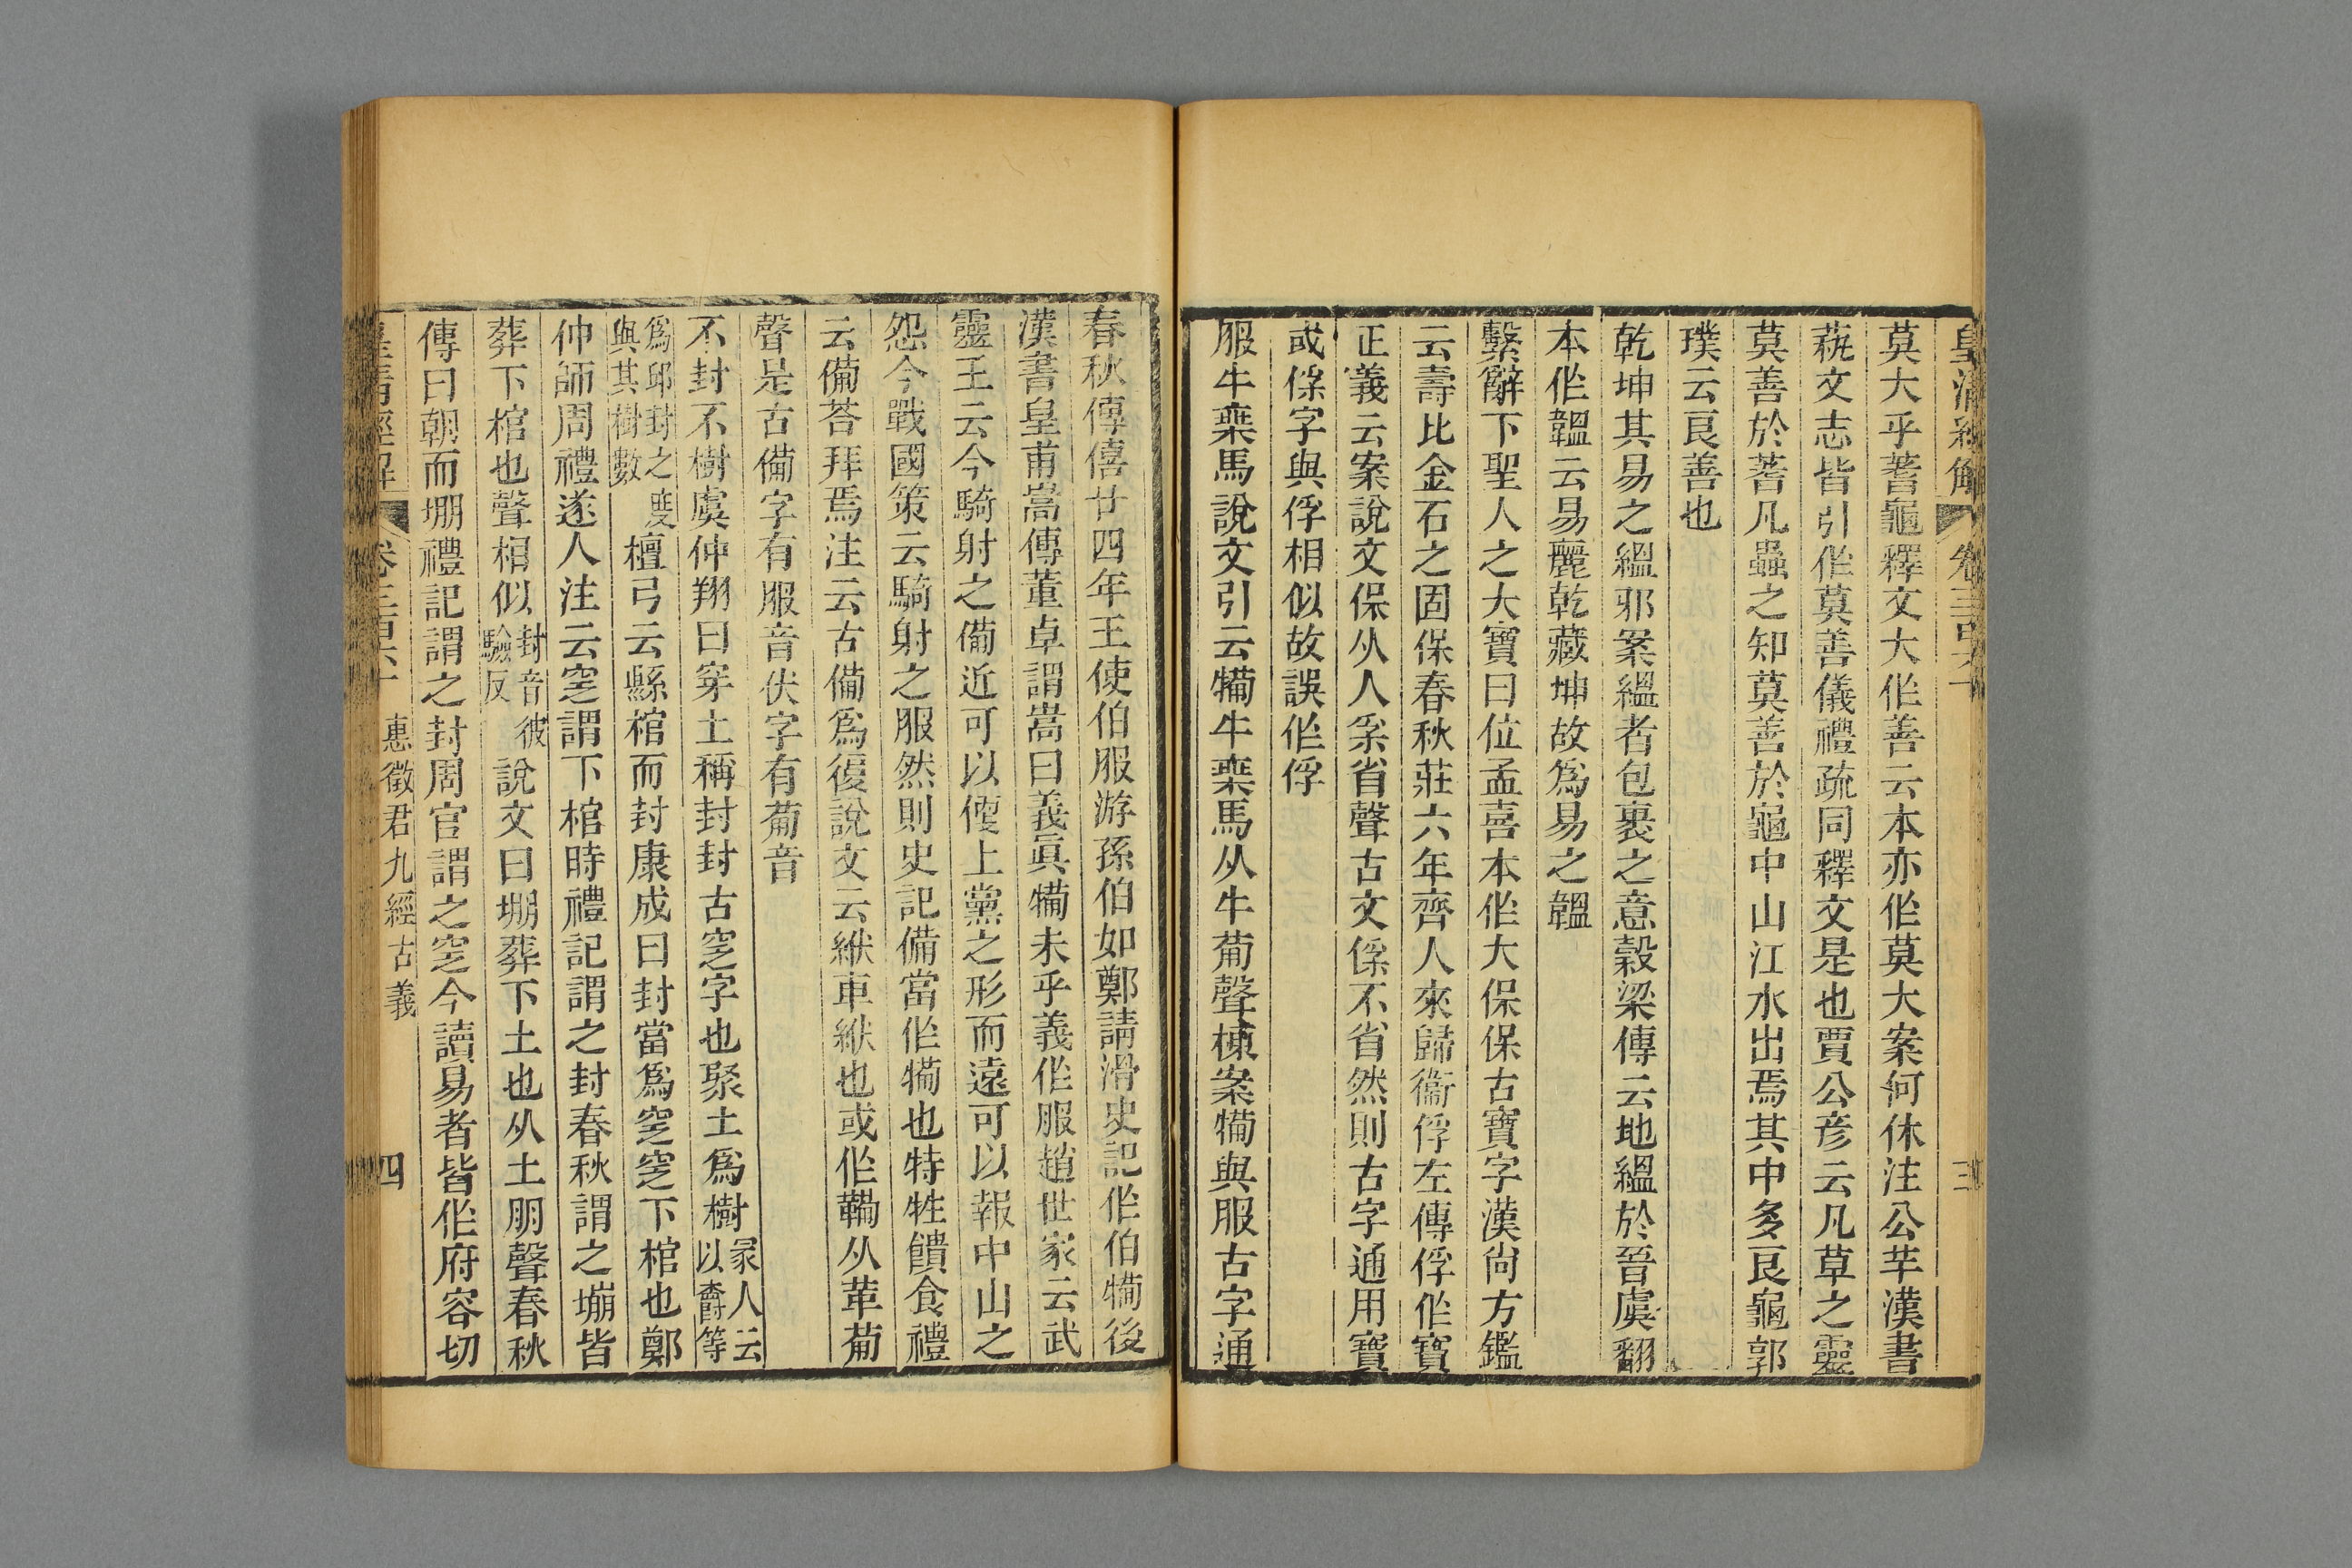 皇清經解 卷三百六十 三
莫大乎蓍龜釋文大作善云本亦作莫大案何休注公羊漢書
蓺文志皆引作莫善儀禮疏同釋文是也賈公彥云凡草之靈
莫善於蓍凡蟲之知莫善於龜中山江水出焉其中多良龜郭
璞云良善也
乾坤其易之縕邪案縕者包裹之意穀梁傳云地縕於晉虞翻
本作韞云易麗乾藏坤故爲易之韞
繫辭下聖人之大寶曰位孟喜本作大保保古寶字漢尙方鑑
云壽比金石之固保春秋莊六年齊人來歸衞俘左傳俘作寶
正義云案說文保从人𤓽省聲古文㑒不省然則古字通用寶
或保字與俘相似故誤作俘
服牛椉馬說文引云犕牛椉馬从牛𤰇聲棟案犕與服古字通
春秋傳僖廿四年王使伯服游孫伯如鄭請滑史記作伯犕後
漢書皇甫嵩傳董卓謂嵩曰義眞犕未乎義作服趙世家云武
靈王云今騎射之備近可以便上黨之形而遠可以報中山之
怨今戰國策云騎射之服然則史記備當作犕也特牲饋食禮
云備荅拜焉注云古備爲復說文云絥車絥也或作鞴从革𤰇
聲是古備字有服音伏字有𤰇音
不封不樹虞仲翔曰穿土稱封封古窆字也聚土爲樹冢人云以爵等
爲邱封之度與其樹數檀弓云縣棺而封康成曰封當爲窆窆下棺也鄭
仲師周禮遂人注云窆謂下棺時禮記謂之封春秋謂之塴皆
葬下棺也聲相似封音彼驗反說文曰堋葬下土也从土朋聲春秋
傳曰朝而堋禮記謂之封周官謂之窆今讀易者皆作府容切
皇清經解 卷三百六十 惠徵君九經古義 四